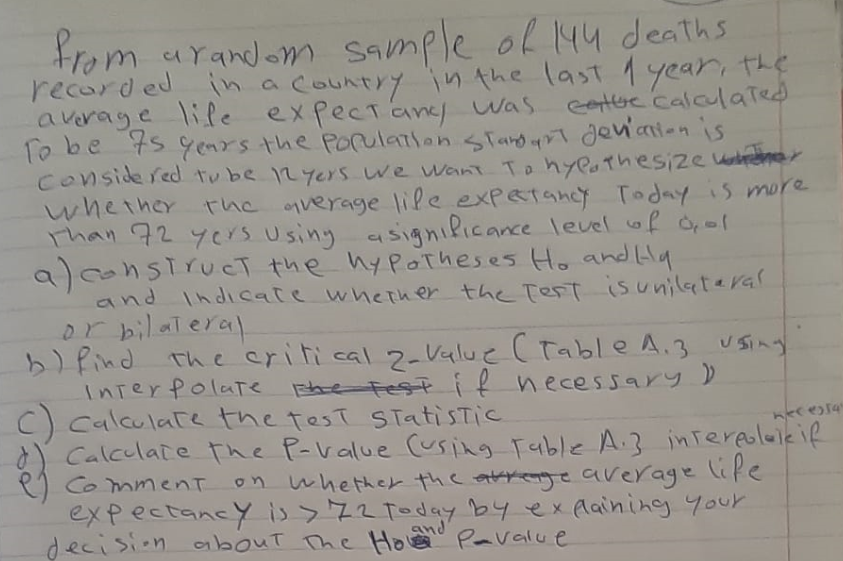 from a random sample of 144 deaths
recorded in a country in the last 1 year, the
average life expectancy was calculated
To be 75 years the population standart deviation is
considered to be 12 yers we want To hypothesize
whether the average life expectancy Today is more
than 72 yers using a significance level of 0,01
a) construct the hypotheses Ho and Ha
and indicate whether the test is unilateral
or bilateral
b) find the critical z-value (Table A.3 using
interpolate if necessary)
c) calculate the test statistic
necessa
d) calculate the P-value (using Table A.3 interpolate if
e) comment on whether the average life
expectancy is > 72 today by explaining your
decision about the Ho and P-value